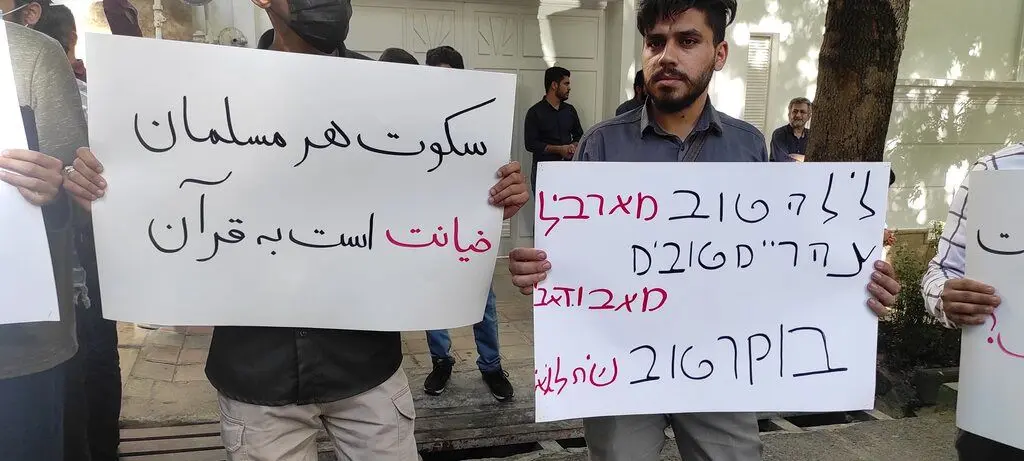 سکوت هر مسلمان
خیانت است به قرآن
לילה טוב מארביל
צהריים טובים
מאבו דאבי
בוקר טוב